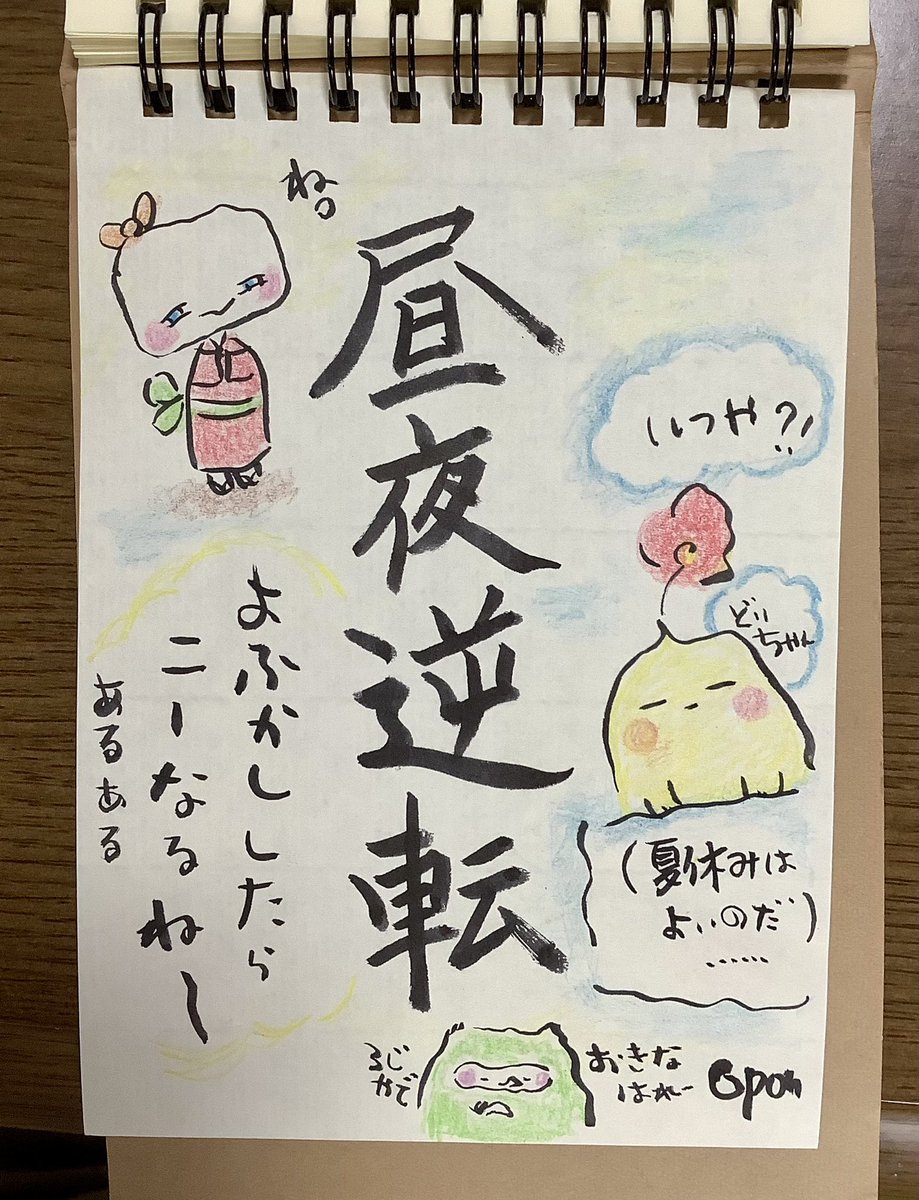 昼夜逆転
ねっ
いつや?!
どい
ちゃん
よふかししたら
こーなるねー
あるある
(夏休みは
よいのだ)
……
おきな
はれー
6じ
やで